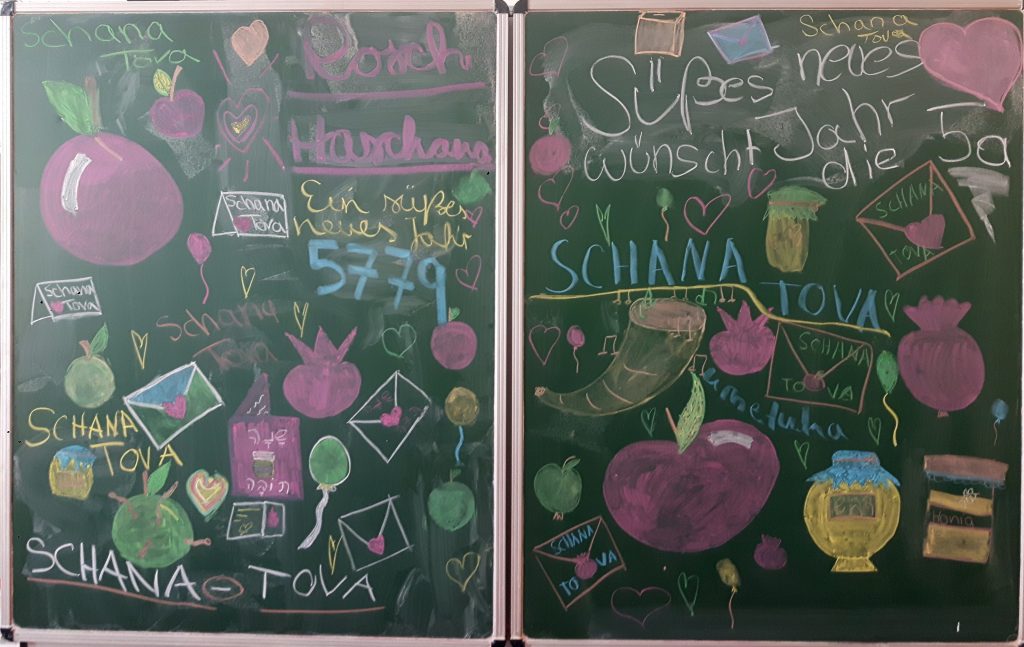 Schana
Tova
Rosch
Haschana
Schana
Tova
Ein süßes
neues Jahr
5779
Schana
Tova
Schana
Tova
SCHANA
TOVA
שנה
טובה
SCHANA - TOVA
Schana
Tova
Süßes neues
Jahr
wünscht die 5a
SCHANA
TOVA
SCHANA
TOVA
SCHANA
TOVA
umetuka
Honig
SCHANA
TOVA